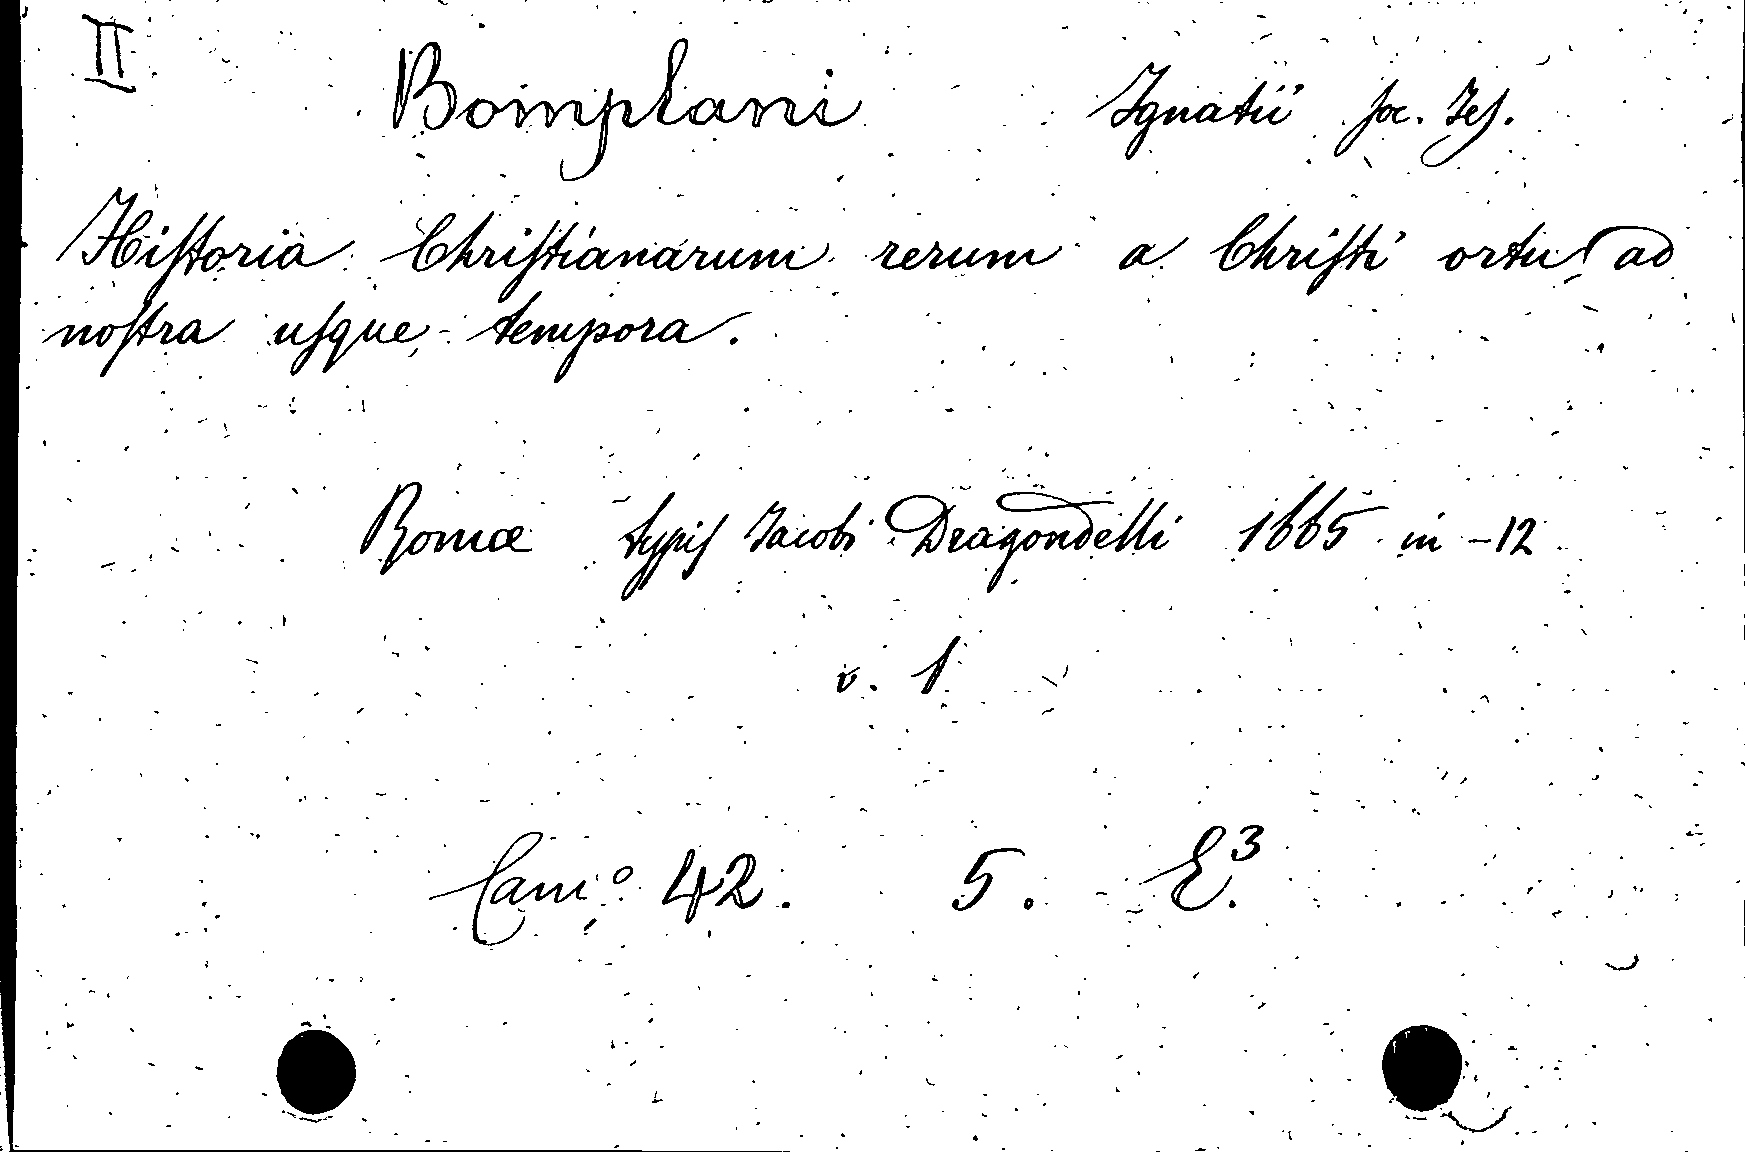 II
Bomplani Ignatii ſoc. Jeſ.
Hiſtoria Chriſtianarum rerum a Chriſti ortu ad
noſtra uſque tempora.
Romæ typiſ Jacobi Dragondelli 1665 in -12
v. 1
Cam.º 42. 5. E.3